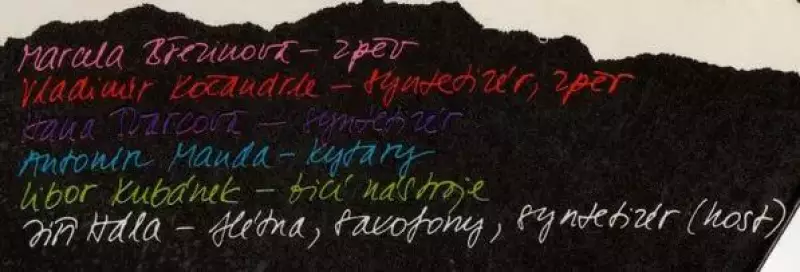 Marcela Březinová – zpěv
Vladimír Kočandrle – syntetizér, zpěv
Hana Tvarcová – syntetizér
Antonín Manda – kytary
Libor Kubánek – bicí nástroje
Jiří Hála – flétna, saxofony, syntetizér (host)